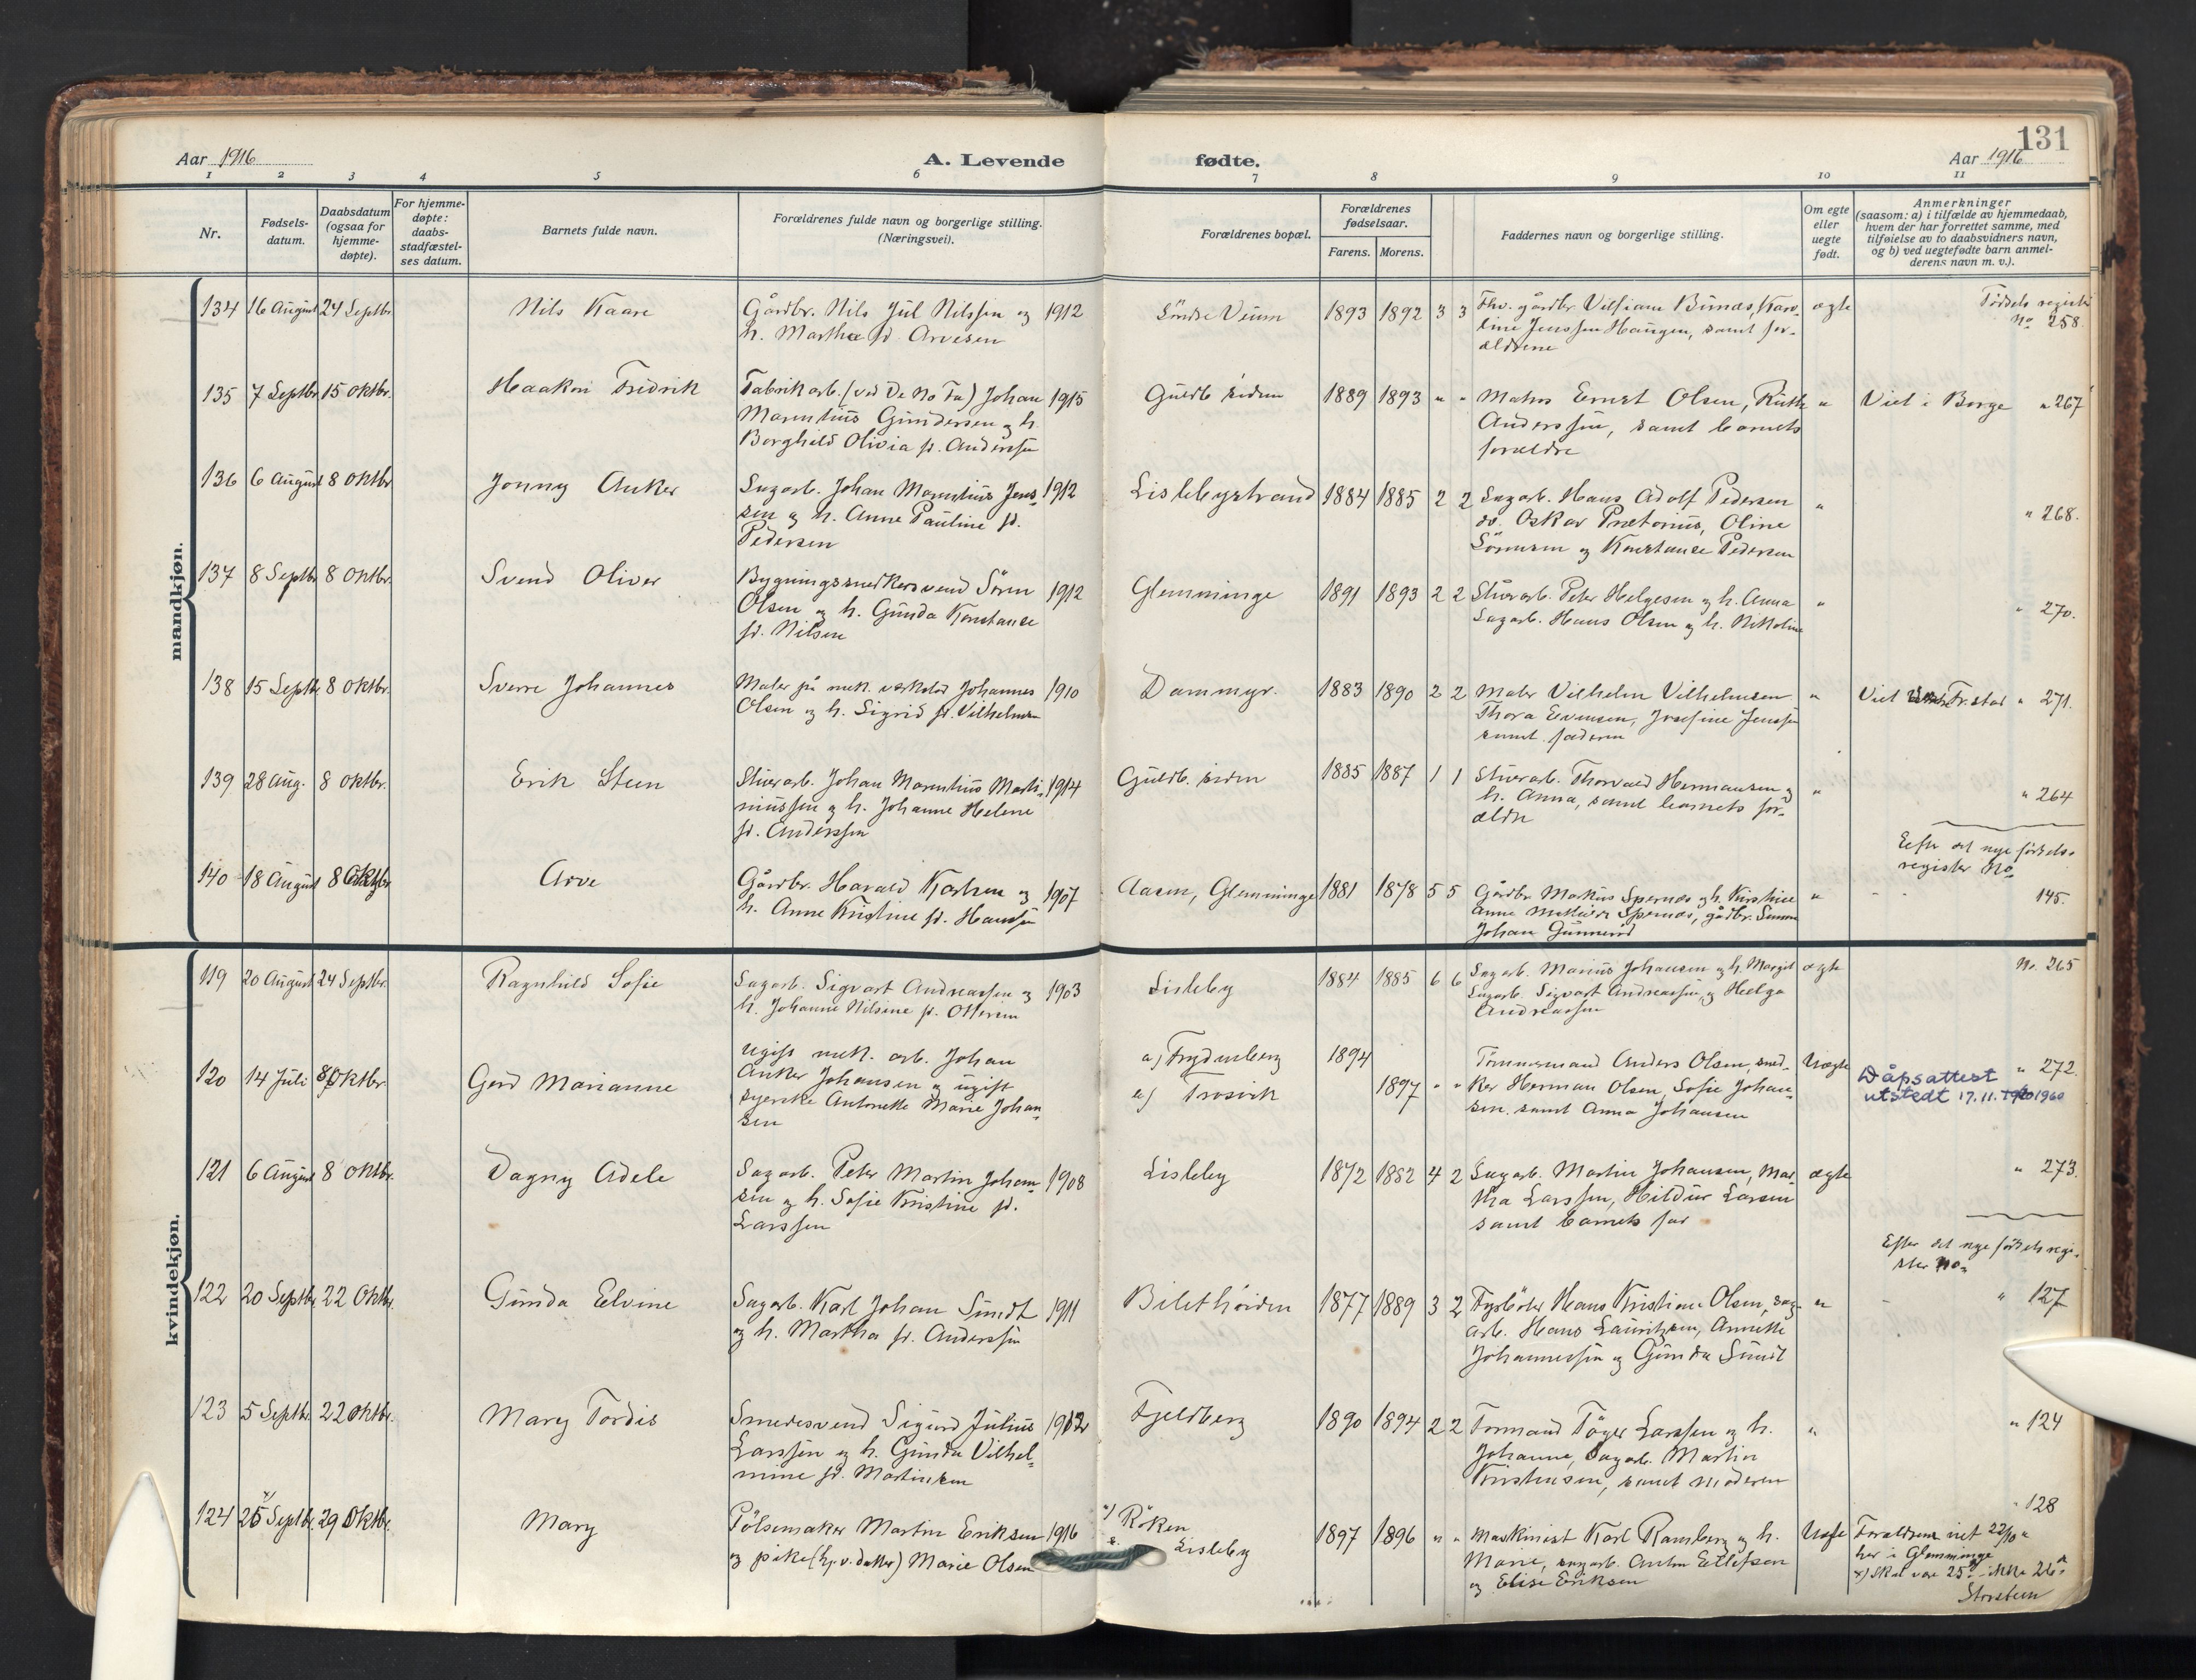 131
Aar 1916
A. Levende
fødte.
Aar 1916
1 2 3 4 5 6 7 8 9 10 11
Nr.
Fødsels-
datum.
Daabsdatum
(ogsaa for
hjemme-
døpte).
For hjemme-
døpte:
daabs-
stadfæstel-
ses datum.
Barnets fulde navn.
Forældrenes fulde navn og borgerlige stilling.
(Næringsvei).
Forældrenes bopæl.
Forældrenes
fødselsaar.
Farens. Morens.
Faddernes navn og borgerlige stilling.
Om egte
eller
uegte
født.
Anmerkninger
(saasom: a) i tilfælde av hjemmedaab,
hvem der har forrettet samme, med
tilføielse av to daabsvidners navn,
og b) ved uegtefødte barn anmel-
derens navn m. v.).
mandkjøn.
134 16 August 24 Septbr. Nils Kaare
Gårdbr. Nils Jul Nilssen og 1912
h. Martha fd. Arvesen
Söndre Veum 1893 1892 3 3
Fhv. gårdbr Villiam Bimas, Karo-
line Jenssen Haugen, samt for-
ældrene
ægte
Födsels registr
No 258.
135 7 Septbr 15 Oktbr. Haakon Fredrik
Fabrikarb. (ved De No Fa) Johan 1915
Marentius Gundersen og h.
Borghild Olivia fd. Anderssen
Guldb. siden 1889 1893 " "
Matros Ernst Olsen, Ruth
Anderssen, samt barnets
forældre
"
Viet i Borge " 267
136 6 August 8 Oktbr Jonny Anker
Sagarb. Johan Marentius Jens- 1912
sen og h. Anne Pauline fd.
Pedersen
Lislebystrand 1884 1885 2 2
Sagarb. Hans Adolf Pedersen
do. Oskar Prætorius, Oline
Sörensen og Konstanse Pedersen
"
" 268.
137 8 Septbr 8 Oktbr. Svend Oliver
Bygningssnedkersvend Sören 1912
Olsen og h. Gunda Konstanse
fd. Nilsen
Glemminge 1891 1893 2 2
Stuerarb. Peter Helgesen og h. Anna
Sagarb. Hans Olsen og h. Nikoline
"
" 270.
138 15 Septbr. 8 Oktbr. Sverre Johannes
Maler på mek. verksted Johannes 1910
Olsen og h. Sigrid fd. Vilhelmsen
Dammyr. 1883 1890 2 2
Maler Vilhelm Vilhelmsen
Thora Evensen, Josefine Jenssen
samt faderen
"
Viet Fr.stad " 271.
139 28 Aug. 8 Oktbr. Erik Steen
Stuerarb. Johan Marentius Marti- 1914
niussen og h. Johanne Helene
fd. Anderssen
Guldb. siden 1885 1887 1 1
Stuerarb. Thorvald Hermansen og
h. Anna, samt barnets for-
ældre
"
" 264
Efter det nye födsels-
register No
140 18 August 8 Oktbr Arve
Gårdbr. Harald Karlsen og 1907
h. Anne Kristine fd. Hanssen
Aasen, Glemminge 1881 1878 5 5
Gårdbr Markus Spernes og h. Kirstine
Anne Spernes, gårdbr.
Johan Gunnerød
"
145.
kvindekjøn.
119 20 August 24 Septbr. Ragnhild Sofie
Sagarb. Sigvart Andreassen og 1903
h. Johanne Nilsine fd. Ottersen
Lisleby 1884 1885 6 6
Sagarb. Marius Johansen og h. Margit
Sagarb. Sigvart Andreassen og Helga
Andreassen
ægte
No. 265
120 14 Juli 8 Oktbr. Gerd Marianne
Ugift mek. arb. Johan
Anker Johansen og ugift
syerske Antonette Marie Johan-
sen
a) Frydenberg 1894
b) Trosvik 1897 " "
Tømmermand Anders Olsen, sned-
ker Herman Olsen, Sofie Johan-
sen. samt Anna Johansen
Uægte
" 272.
Dåpsattest
utstedt 17.11. 1960
121 6 August 8 Oktbr. Dagny Adele
Sagarb. Peter Martin Johan- 1908
sen og h. Sofie Kristine fd.
Larssen
Lisleby 1872 1882 4 2
Sagarb. Martin Johansen, Mar-
tha Larssen, Hildur Larsen
samt barnets far
ægte
" 273.
Efter det nye födsels regi-
ster No
122 20 Septbr. 22 Oktbr. Gunda Elvine
Sagarb. Karl Johan Sundt 1911
og h. Martha fd. Anderssen
Bilethöiden 1877 1889 3 2
Fyrböter Hans Kristian Olsen, sag-
arb. Hans Lauritzen, Annette
Johannessen og Gunda Sundt
"
" 127
123 5 Septbr. 22 Oktbr. Mary Tordis
Smedesvend Sigurd Julius 1912
Larssen og h. Gunda Vilhel-
mine fd. Martinsen
Fjeldberg 1890 1894 2 2
Formand Töger Larssen og h.
Johanne, sagarb. Martin
Kristensen, samt moderen
"
" 124
124 25 x) Septbr. 29 Oktbr. Mary
Pölsemaker Martin Eriksen 1916
og pike (hj. v. datter) Marie Olsen
a) Röken
b. Lisleby
1897 1896 " "
Maskinist Karl Ramberg og h.
Marie, sagarb. Anton Edlefsen
og Elise Eriksen
Uægte
" 128
Forældrene viet 22/10
her i Glemminge
x) Skal være 25. ikke 26.
Storsteen